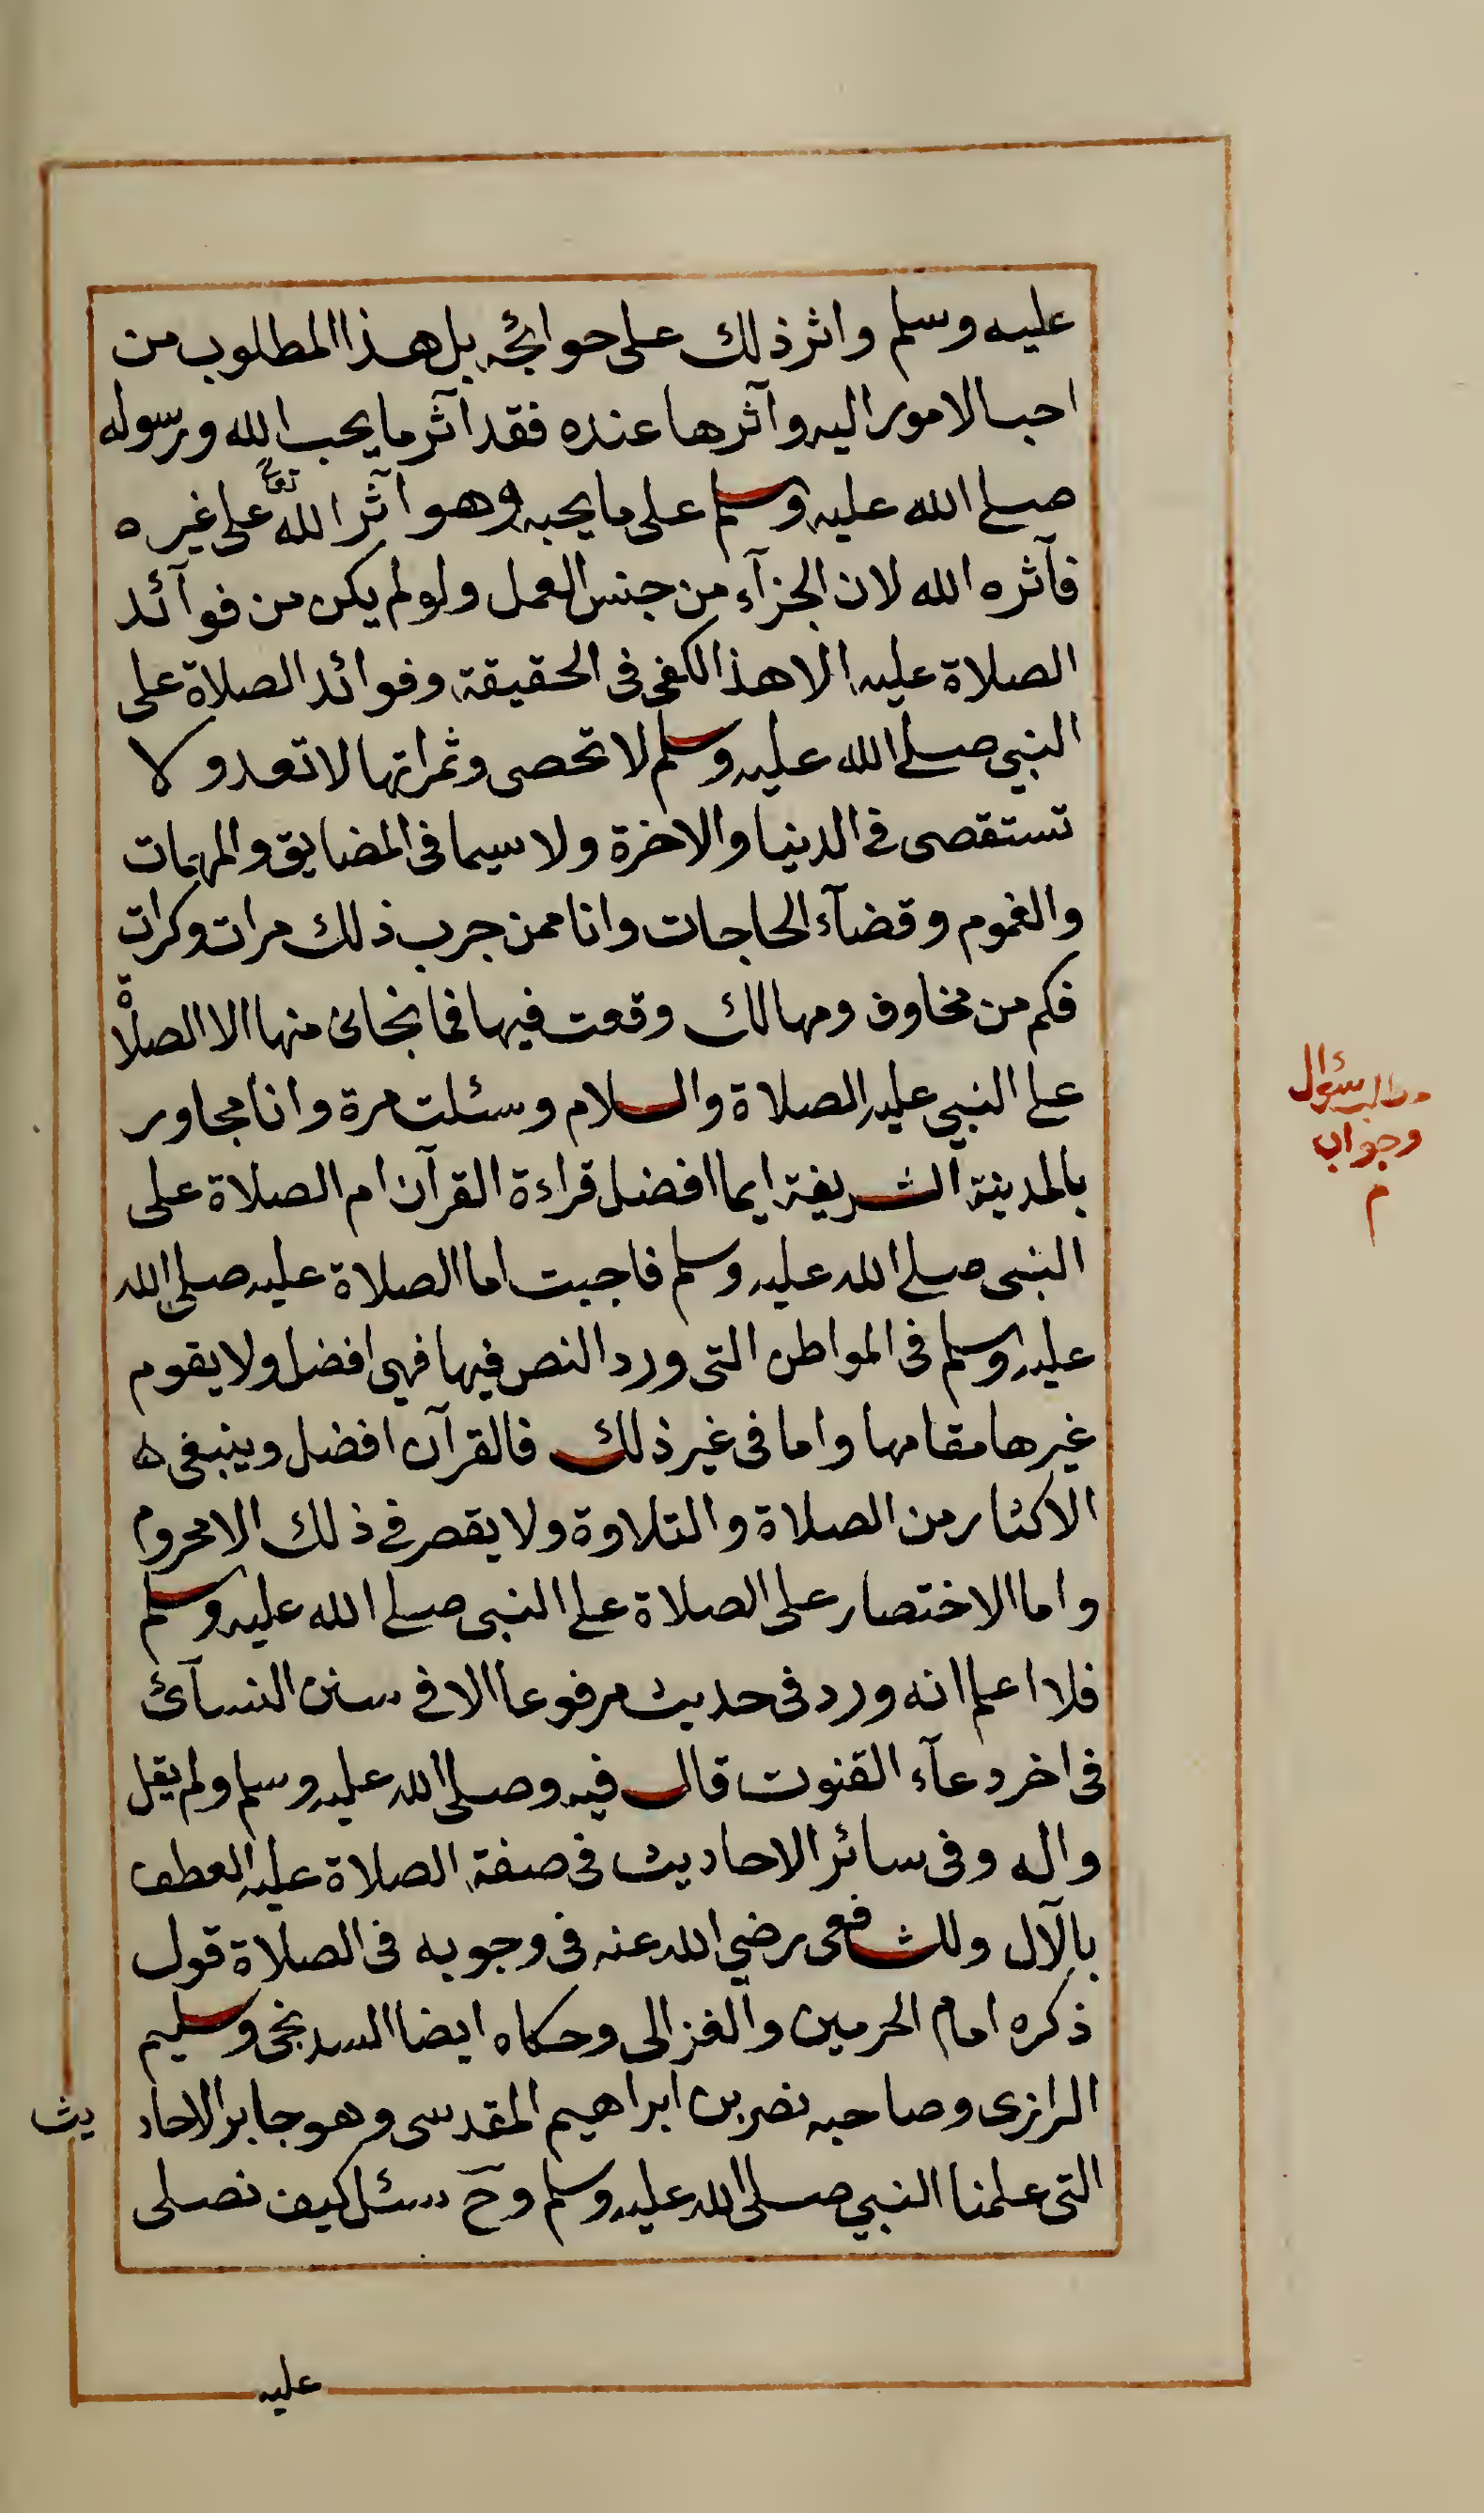 عليه وسلم واثر ذلك على حوائجه بل هذا المطلوب من
احب الامور اليه وآثرها عنده فقد آثر ما يحب الله ورسوله
صلى الله عليه وسلم على ما يحبه وهو آثر الله تعالى على غيره
فآثره الله لان الجزآء من جنس العمل ولو لم يكن من فوآئد
الصلاة عليه الا هذا لكفى فى الحقيقة وفوائد الصلاة على
النبي صلى الله عليه وسلم لا تحصى وثمراتها لا تعد ولا
تستقصى فى الدنيا والاخرة ولا سيما فى المضايق والمهمات
والغموم وقضآء الحاجات وانا ممن جرب ذلك مرات وكرات
فكم من مخاوف ومهالك وقعت فيها فما نجانى منها الا الصلاة
على النبي عليه الصلاة والسلام وسئلت مرة وانا مجاور
بالمدينة الشريفة ايما افضل قراءة القرآن ام الصلاة على
النبى صلى الله عليه وسلم فاجبت اما الصلاة عليه صلى الله
عليه وسلم فى المواطن التى ورد النص فيها فهى افضل ولا يقوم
غيرها مقامها واما فى غير ذلك فالقرآن افضل وينبغى ه
الاكثار من الصلاة والتلاوة ولا يقصر فى ذلك الا محروم
واما الاختصار على الصلاة على النبى صلى الله عليه وسلم
فلا اعلم انه ورد فى حديث مرفوعا الا فى سنن النسآئ
فى اخر دعآء القنوت قال فيه وصلى الله عليه وسلم ولم يقل
واله وفى سائر الاحاديث فى صفة الصلاة عليه العطف
بالآل وللشافعى رضي الله عنه فى وجوبه فى الصلاة قول
ذكره امام الحرمين والغزالى وحكاه ايضا السدنجى وسليم
الرازى وصاحبه نصر بن ابراهيم المقدسى وهو جابر الاحاديث
التى علمنا النبي صلى الله عليه وسلم وح سئل كيف نصلى
عليه
مطلب سئوال
وجواب
م